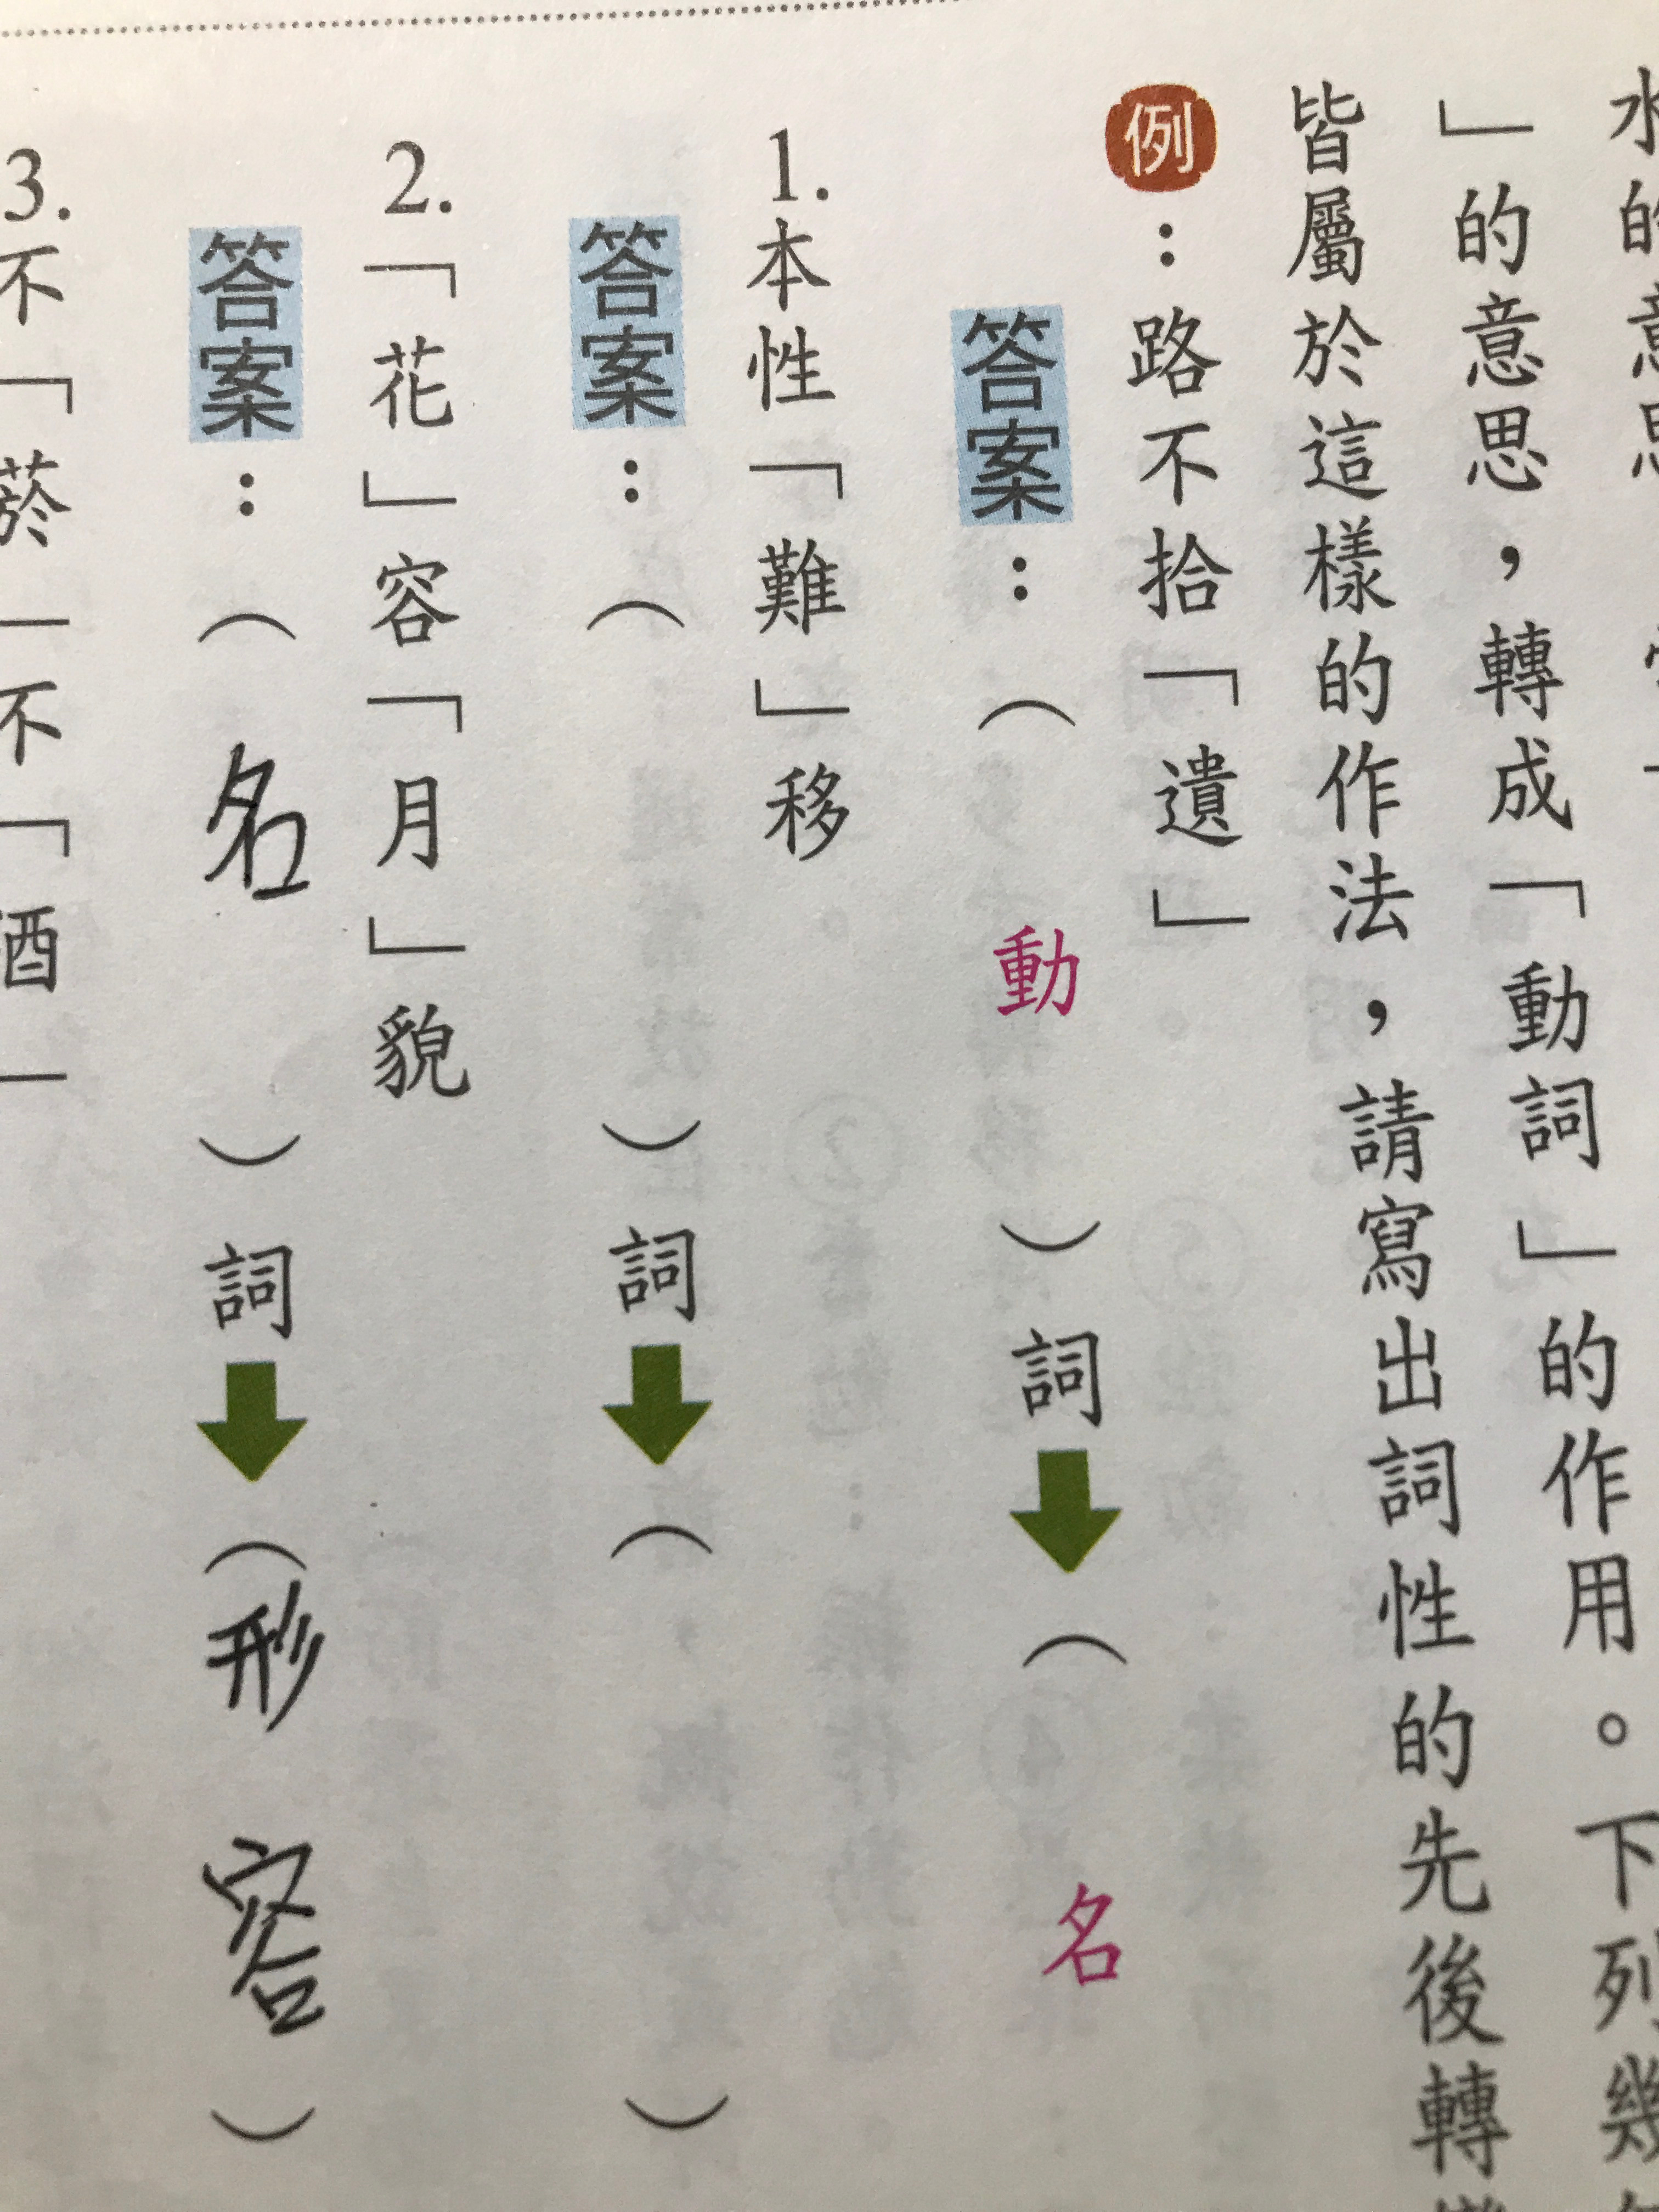 水的意思
」的意思，轉成「動詞」的作用。下列幾
皆屬於這樣的作法，請寫出詞性的先後轉
例：路不拾「遺」
答案：（動）詞↓（名
1.本性「難」移
答案：（　）詞↓（　）
2.「花」容「月」貌
答案：（名）詞↓（形容）
3.不「菸」不「酒」